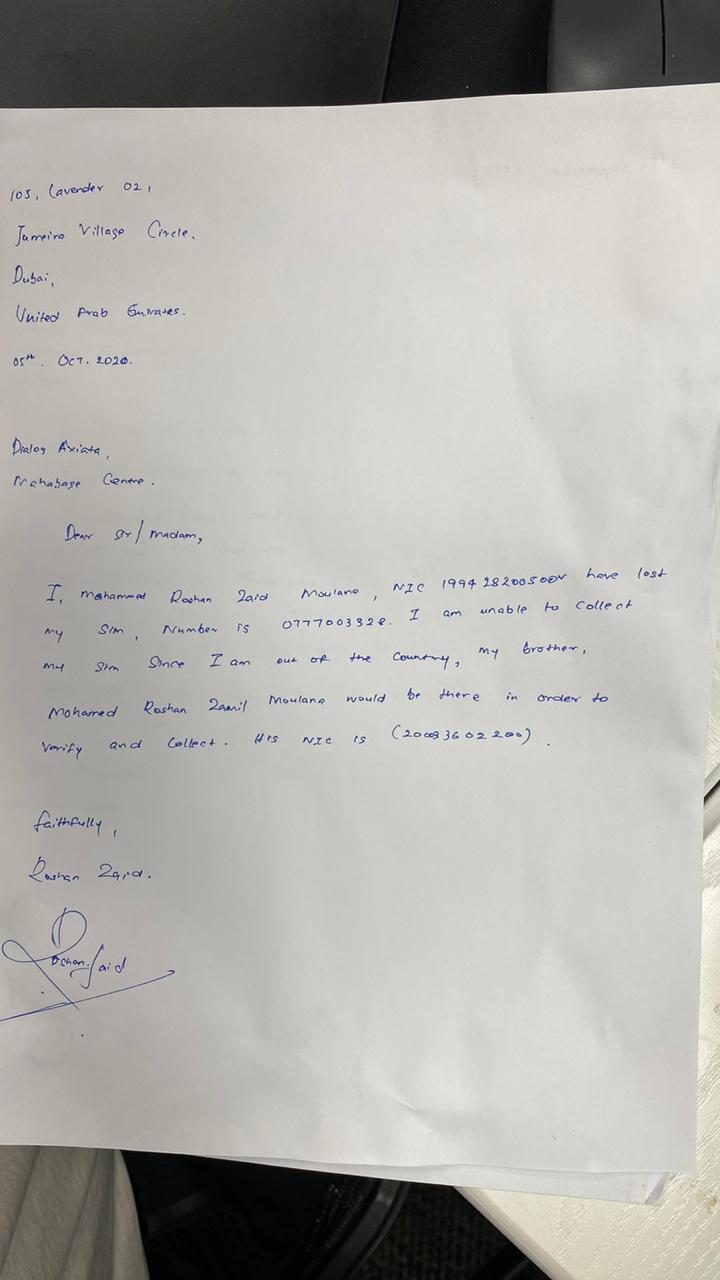 105, Lavender 02,
Jumeira Village Circle,
Dubai,
United Arab Emirates.
05th. Oct. 2020.
Dialog Axiata,
Mahabage Centre.
Dear Sir/Madam,
I, Mohammed Roshan Zaid Moulana, NIC have lost
my Sim, Number is 0777003328. I am unable to collect
my sim since I am out of the country, my brother,
Mohamed Roshan Zamil Moulana would be there in order to
verify and collect. His NIC is
faithfully,
Roshan Zaid.
Roshan Zaid